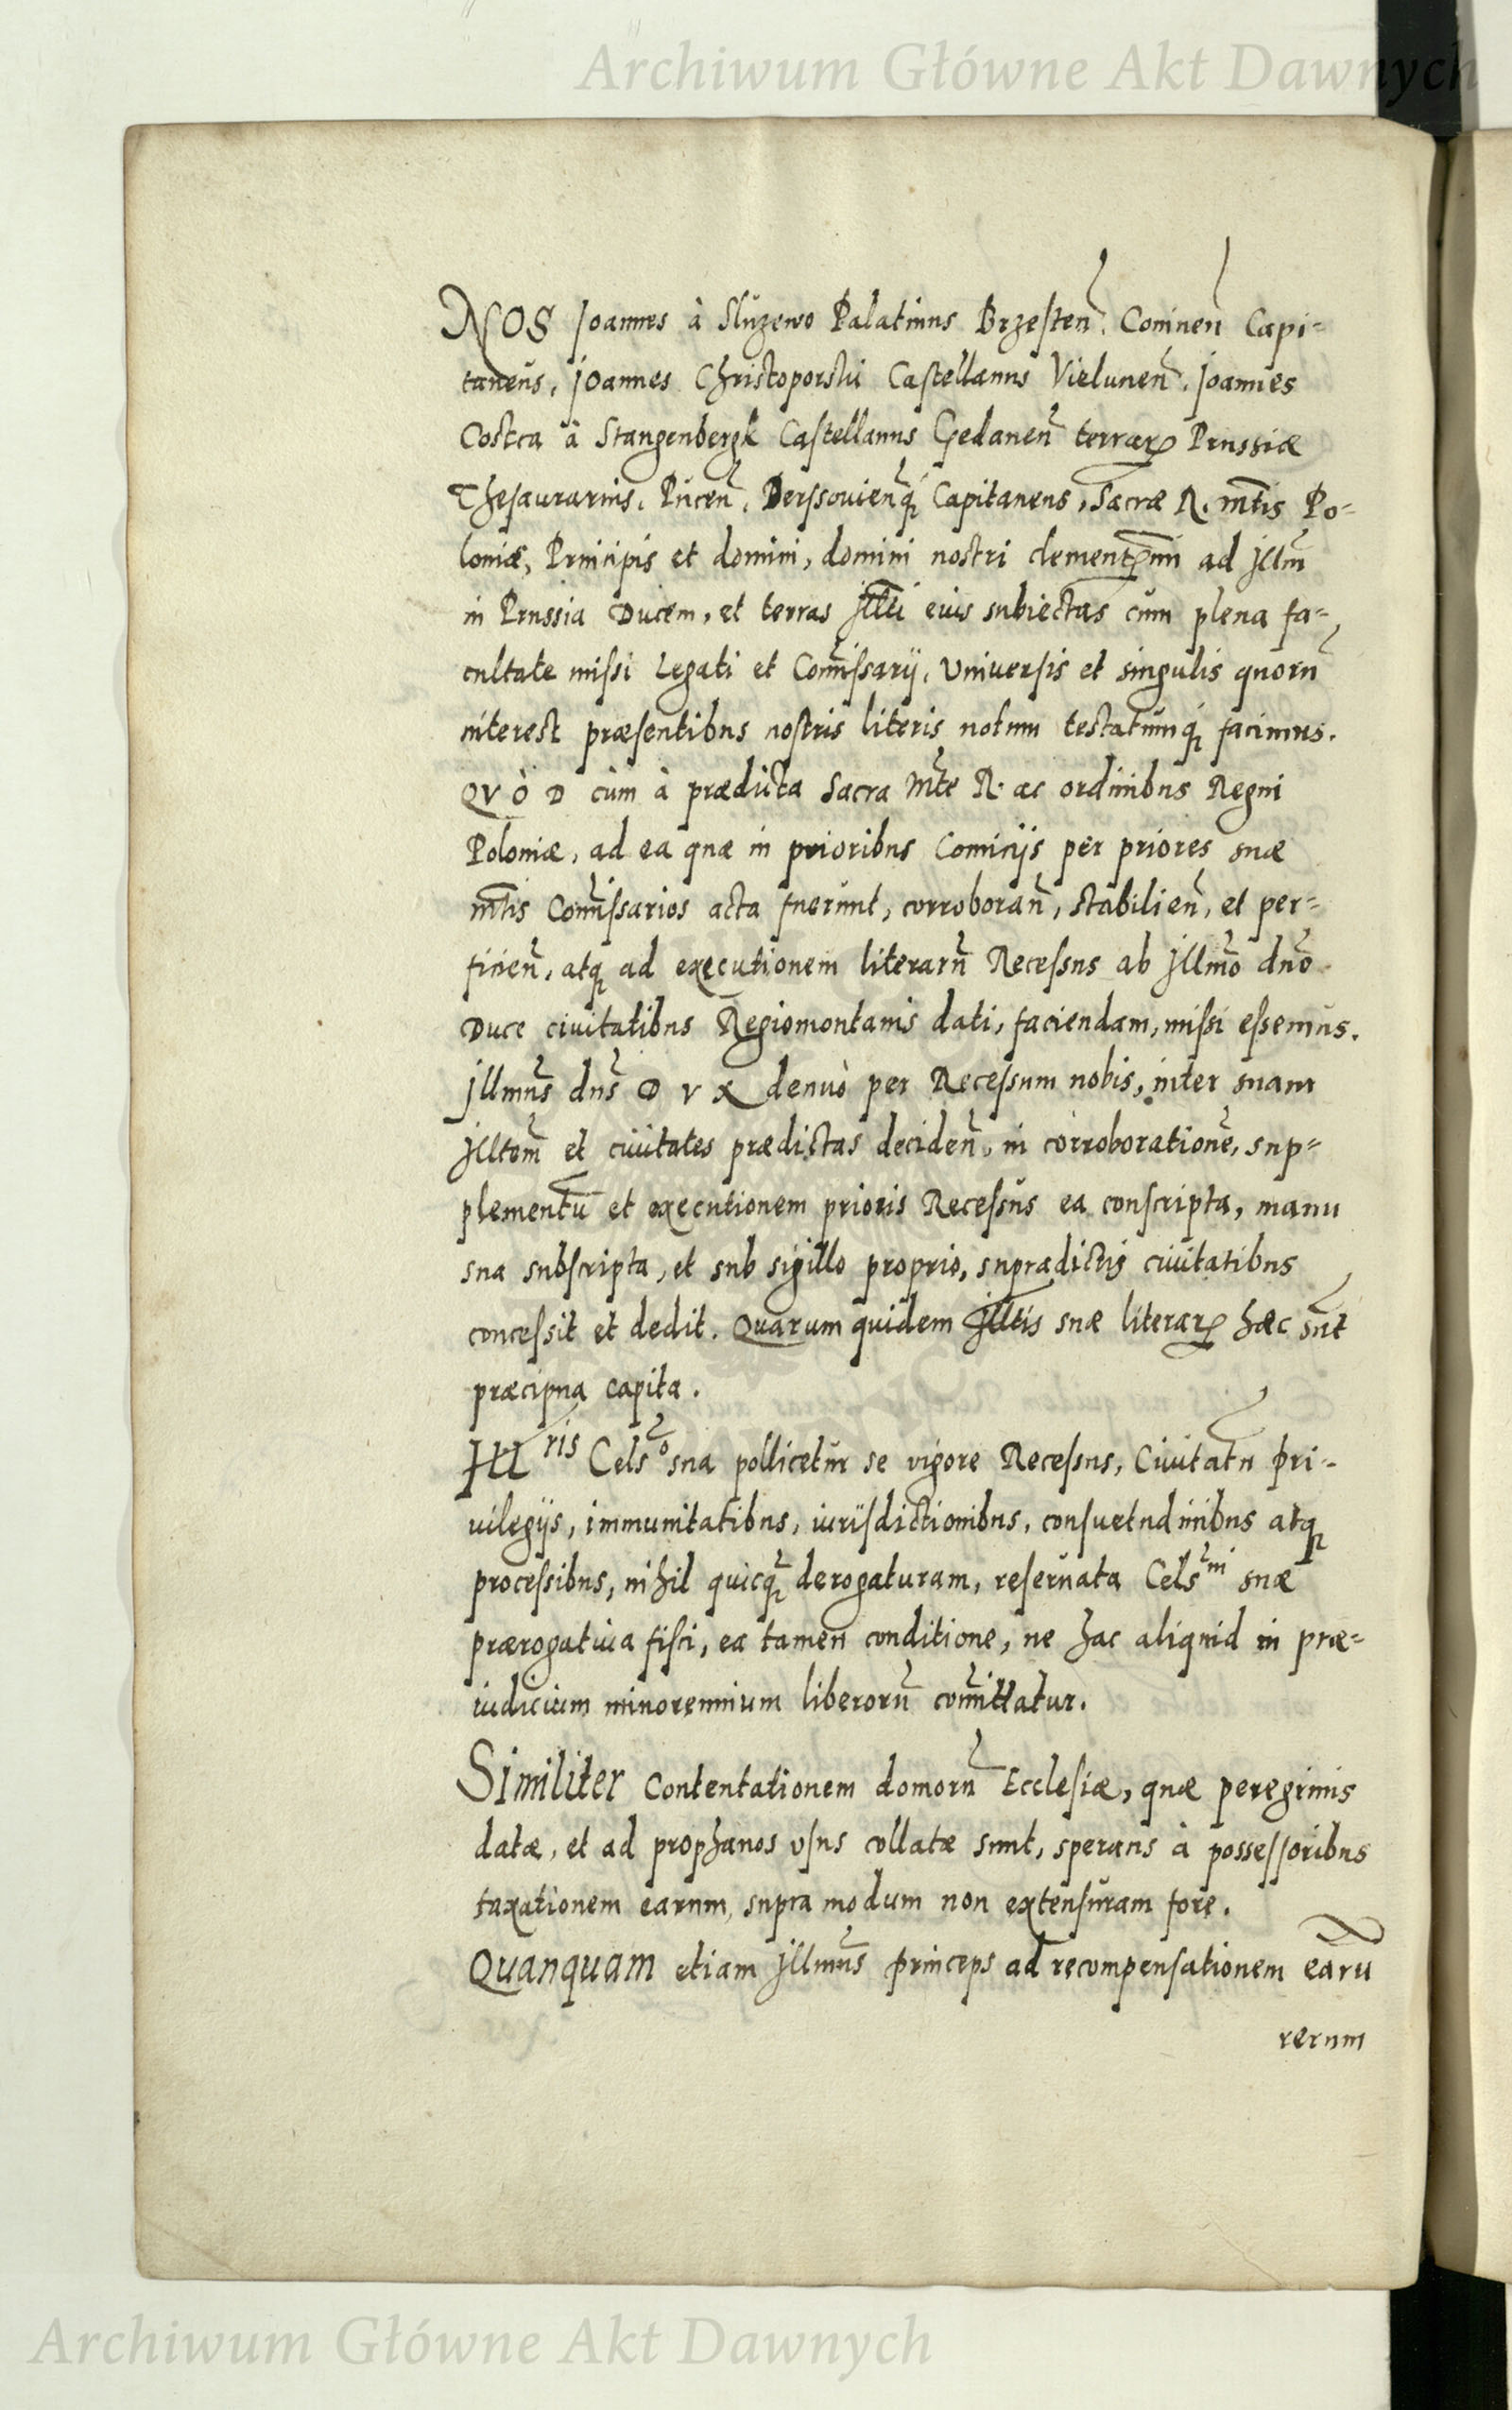 Archiwum Główne Akt Dawnych
NOS Joannes à Sluzewo Palatinus Brzesten̄. Coninen̄ Capi-
taneus, Joannes Christoporski Castellanus Vielunen̄. Joannes
Costca à Stangenbergk Castellanus Gedanen̄ terrarꝝ Prussiæ
Thesaurarius, Pucen̄, Derssouienq́ꝫ Capitaneus, Sacræ R. Mt̄is Po-
loniæ, Principis et domini, domini nostri clementꝭmi ad Illm̄
in Prussia Ducem, et terras Illt̄i eius subiectas cum plena fa-
cultate missi Legati et Com̄issarij, Universis et singulis quorū
interest præsentibus nostris literis notum testatumq́ꝫ facimus.
QVÒD cùm à prædicta Sacra Mt̄e R. ac ordinibus Regni
Poloniæ, ad ea quæ in prioribus Comicijs per priores suæ
Mt̄is Com̄issarios acta fuerunt, corroboran̄, stabilien̄, et per-
ficien̄, atqꝫ ad executionem literarū Recessus ab Illmō dnō
Duce civitatibus Regiomontanis dati, faciendam, missi essemus.
Illmūs dn̄s DVX denuò per Recessum nobis, inter suam
Illtem̄ et ciuitates prædictas deciden̄, in corroborationē, sup-
plementū et executionem prioris Recessus ea conscripta, manu
sua subscripta, et sub sigillo proprio, supradictis ciuitatibus
concessit et dedit. Quarum quidem Illt̄is suæ literarꝝ hæc sūt
præcipua capita.
Ill ris Cels̄o sua pollicetur se vigore Recessus, Ciuitatū pri-
uilegijs, immunitatibus, iurisdictionibus, consuetudinibus atqꝫ
processibus, nihil quicq̄ꝫ derogaturam, reseruata Cels̄ni suæ
prærogatiua fisci, ea tamen conditione, ne hac aliquid in præ-
iudicium minorennium liberorū com̄ittatur.
Similiter Contentationem domorū Ecclesiæ, quæ peregrinis
datæ, et ad prophanos usus collatæ sunt, sperans à possessoribus
taxationem earum, supra modum non extensuram fore.
Quanquam etiam Illmūs princeps ad recompensationem earū
rerum
Archiwum Główne Akt Dawnych